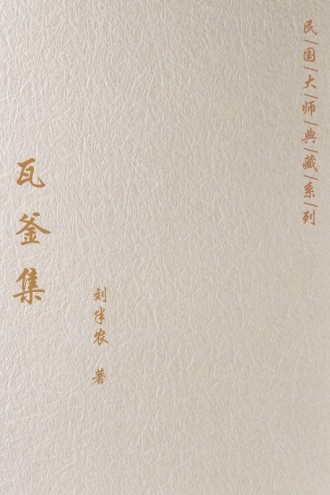 民|国|大|师|典|藏|系|列
瓦釜集
刘半农 著